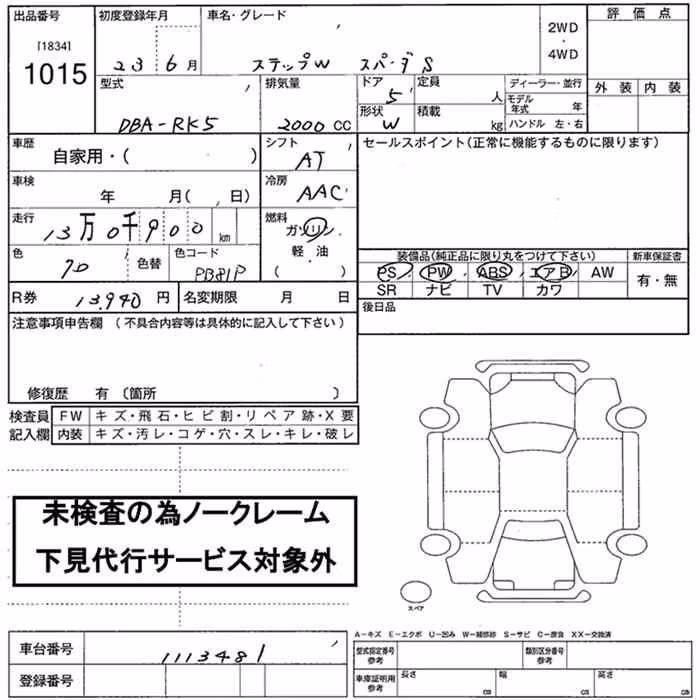 出品番号 初度登録年月 車名・グレード 評価点
[1834]
1015
23 6月 ステップW スパーダS
2WD
・
4WD
型式 排気量 ドア 定員 ディーラー・並行 外装 内装
5 人 モデル年式 年
DBA-RK5 2000CC 形状 W 積載 kg ハンドル 左・右
車歴 自家用・( ) シフト AT セールスポイント(正常に機能するものに限ります)
車検 年 月( 、日) 冷房 AAC
走行 13万0千900km 燃料 ガソリン
軽・油
( )
色 色替 色コード PB81P
装備品(純正品に限り丸をつけて下さい) 新車保証書
PS PW ABS エアB AW 有・無
SR ナビ TV カワ
R券 13,940円 名変期限 月 日 後日品
注意事項申告欄(不具合内容等は具体的に記入して下さい)
修復歴 有〔箇所 〕
検査員 FW キズ・飛石・ヒビ割・リペア跡・X要
記入欄 内装 キズ・汚レ・コゲ・穴・スレ・キレ・破レ
未検査の為ノークレーム
下見代行サービス対象外
スペア
A-キズ E-エクボ U-凹み W-補修跡 S-サビ C-腐食 XX-交換済
車台番号 1113481 型式指定番号参考 類別区分番号参考
登録番号 車庫証明用参考 長さ cm 幅 cm 高さ cm